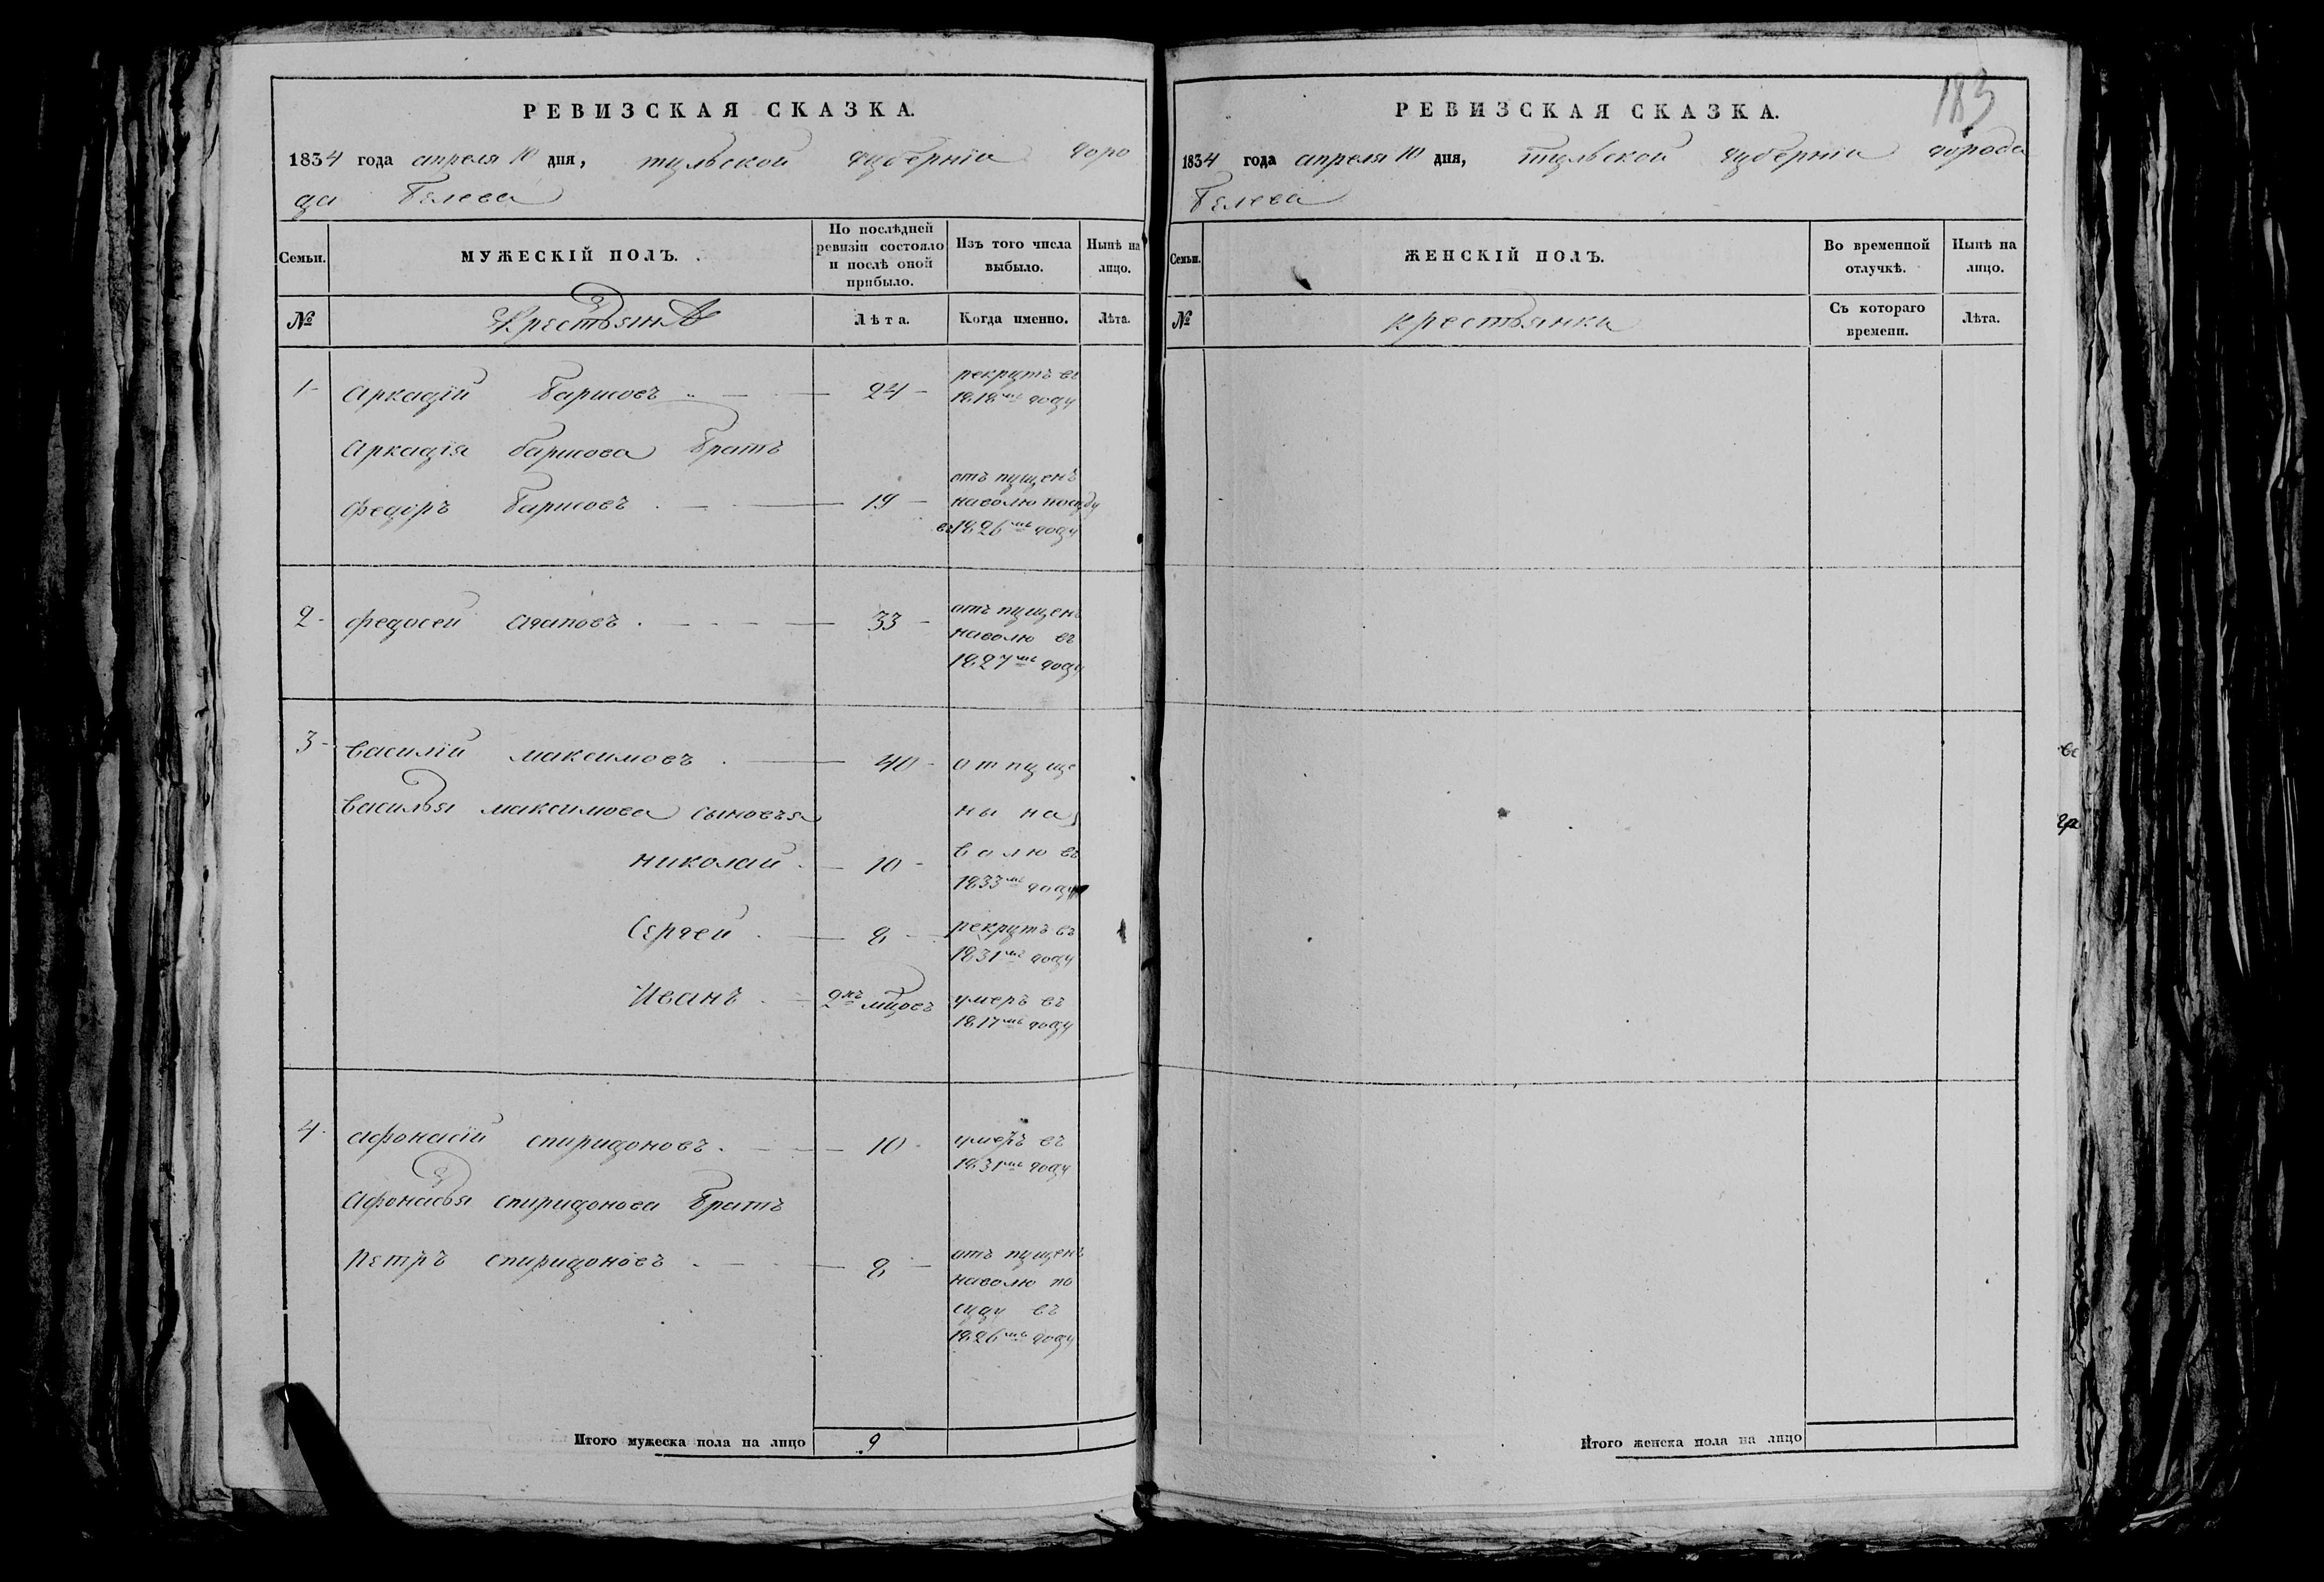 РЕВИЗСКАЯ СКАЗКА.
1834 года апреля 10 дня, тульской губерніи горо
да Белева
Семьи.
МУЖЕСКІЙ ПОЛЪ.
По послѣдней
ревизіи состояло
и послѣ оной
прибыло.
Изъ того числа
выбыло.
Нынѣ на
лицо.
№
Крестьянъ
Лѣта.
Когда именно.
Лѣта.
1 Аркадій Барисовъ 24 рекрутъ въ
1818мъ году
Аркадія барисова братъ
Федоръ Барисовъ 19 отъ пущенъ
наволю посуду
въ 1826мъ году
2 федосей Агаповъ 33 отъ пущенъ
наволю въ
1827мъ году
3 василій максимовъ 40 отпуще
василья максимова сыновья ны на
николай 10 волю въ
1833мъ году
Сергей 8 рекрутъ въ
1831мъ году
Иванъ 2хъ мцовъ умеръ въ
1817мъ году
4 афонасій спиридоновъ 10 умеръ въ
1831мъ году
Афонасья спиридонова братъ
Петръ спиридоновъ 8 отъ пущенъ
наволю по
суду въ
1826мъ году
Итого мужеска пола на лицо 9
183
РЕВИЗСКАЯ СКАЗКА.
1834 года апреля 10 дня, тульской губерніи города
Белева
Семьи.
ЖЕНСКІЙ ПОЛЪ.
Во временной
отлучкѣ.
Нынѣ на
лицо.
№
крестьянки
Съ котораго
времени.
Лѣта.
Итого женска пола на лицо